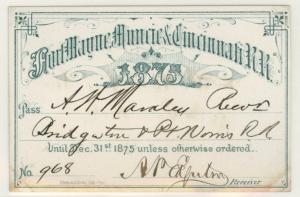 Fort Wayne Muncie & Cincinnati R.R.
1875
Pass A. H. Recr
Bridgeton & Pt Norris R.R.
Until Dec. 31st 1875 unless otherwise ordered.
No. 968
Receiver